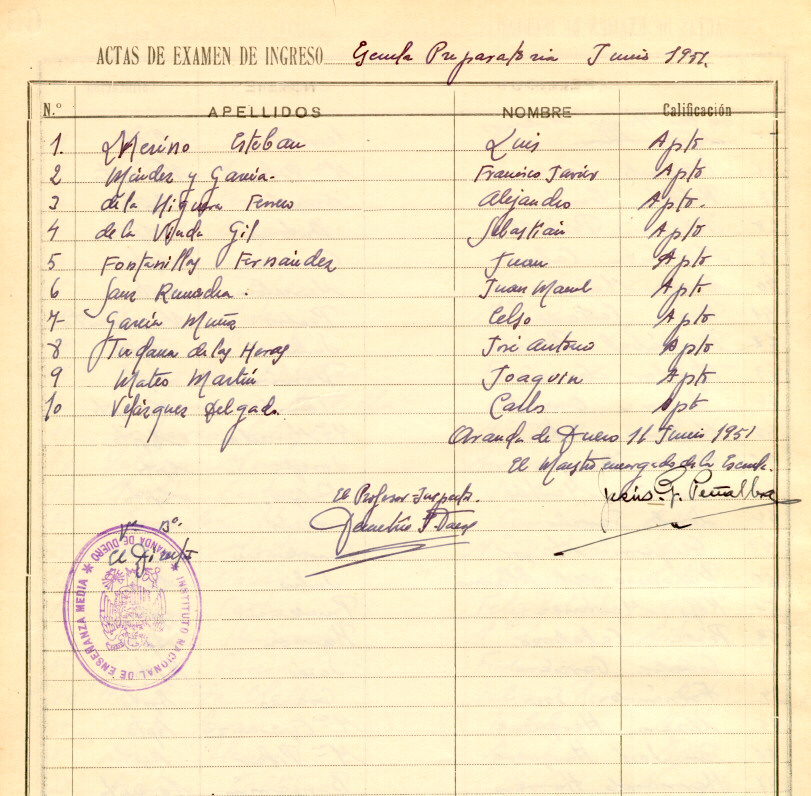 ACTAS DE EXAMEN DE INGRESO Escuela Preparatoria Junio 1951.
N.º APELLIDOS NOMBRE Calificación
1. Merino Esteban Luis Apto
2 Méndez y García. Francisco Javier Apto
3 de la Higuera Ferrero Alejandro Apto.
4 de la Viuda Gil Sebastián Apto
5 Fontanillas Fernández Juan Apto
6 Sanz Juan Manuel Apto
7 García Muñoz Celso Apto
8 de las Heras José Antonio Apto
9 Mateo Martín Joaquín Apto
10 Velázquez Delgado. Carlos Apto
Aranda de Duero 16 Junio 1951
El Maestro encargado de la Escuela.
El Profesor Inspector.
Jesús G. Peñalba
Demetrio
Vº Bº.
El Director
INSTITUTO NACIONAL DE ENSEÑANZA MEDIA * ARANDA DE DUERO *